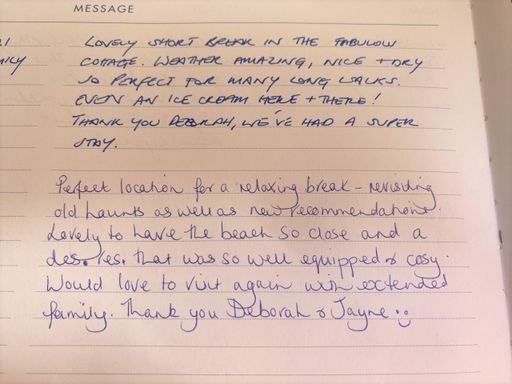 MESSAGE
LOVELY SHORT BREAK IN THE FABULOUS
COTTAGE. WEATHER AMAZING, NICE + DRY
SO PERFECT FOR MANY LONG WALKS.
EVEN AN ICE CREAM HERE + THERE!
THANK YOU DEBORAH, WE'VE HAD A SUPER
STAY.
Perfect location for a relaxing break - revisiting
old haunts as well as new recommendations.
Lovely to have the beach so close and a
des. res. that was so well equipped & cosy.
Would love to visit again with extended
family. Thank you Deborah & Jayne :)